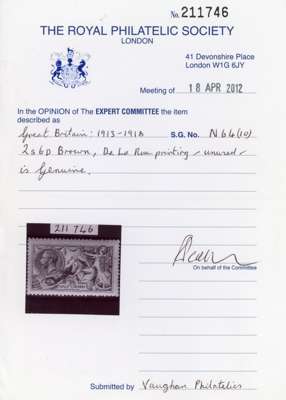 No. 211746
THE ROYAL PHILATELIC SOCIETY
LONDON
41 Devonshire Place
London W1G 6JY
Meeting of 18 APR 2012
In the OPINION of The EXPERT COMMITTEE the item
described as
Great Britain: 1913-1918 S.G. No. N64(10)
2s6d Brown, De La Rue printing - unused -
is Genuine.
211 746
On behalf of the Committee
Submitted by Vaughan Philatelics